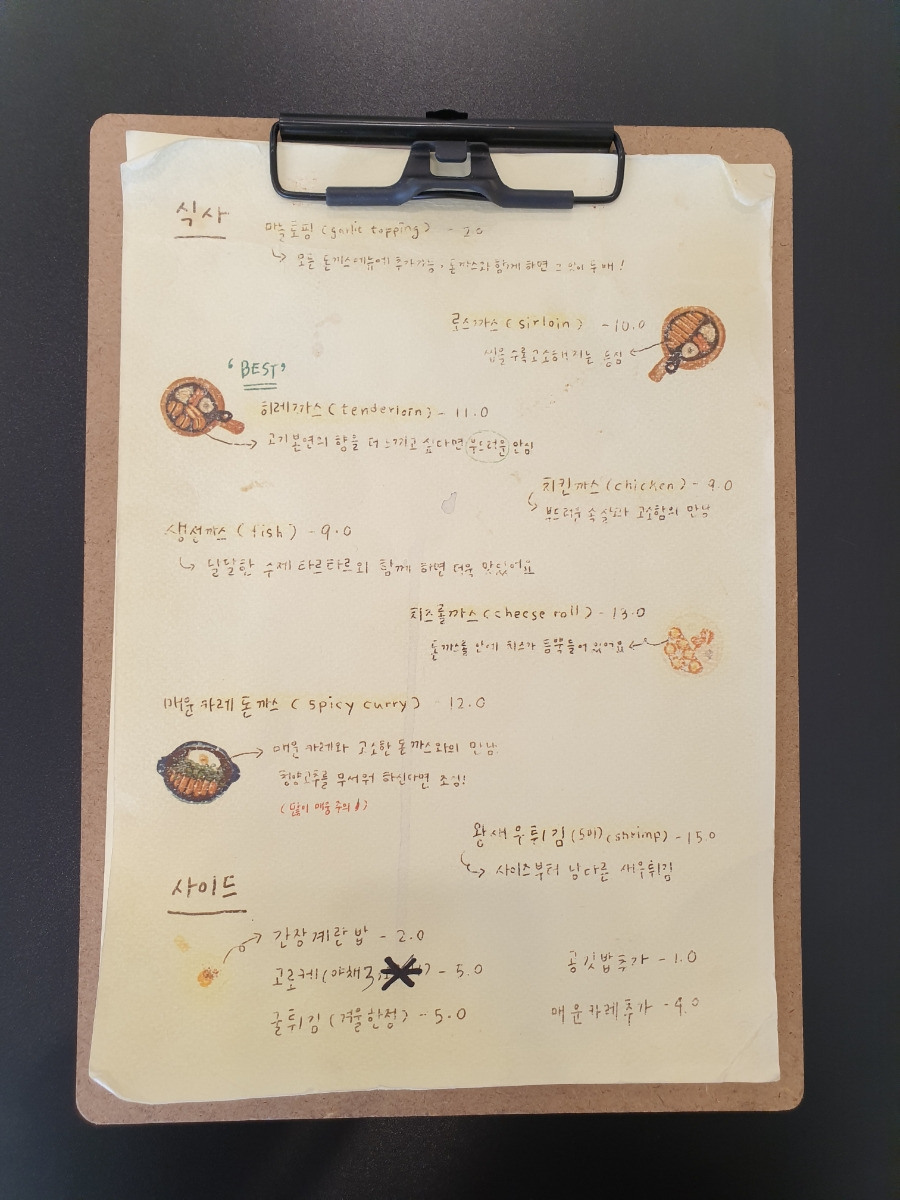 식사
마늘토핑 (garlic topping) - 2.0
모든 돈까스메뉴에 추가가능. 돈까스와 함께 하면 그 맛이 두배!
로스까스 (sirloin) - 10.0
씹을수록 고소해지는 등심
'BEST'
히레까스 (tenderloin) - 11.0
고기본연의 향을 더 느끼고 싶다면 부드러운 안심
치킨까스 (chicken) - 9.0
부드러운 속살과 고소함의 만남
생선까스 (fish) - 9.0
달달한 수제 타르타르와 함께 하면 더욱 맛있어요
치즈롤까스 (cheese roll) - 13.0
돈까스롤 안에 치즈가 듬뿍들어 있어요
매운 카레 돈까스 (spicy curry) - 12.0
매운 카레와 고소한 돈까스와의 만남
청양고추를 무서워 하신다면 조심!
(많이 매움 주의)
왕새우튀김 (5미) (shrimp) - 15.0
사이즈부터 남다른 새우튀김
사이드
간장계란밥 - 2.0
고로케 (야채3, ) - 5.0
굴튀김 (겨울한정) - 5.0
공깃밥추가 - 1.0
매운카레추가 - 9.0